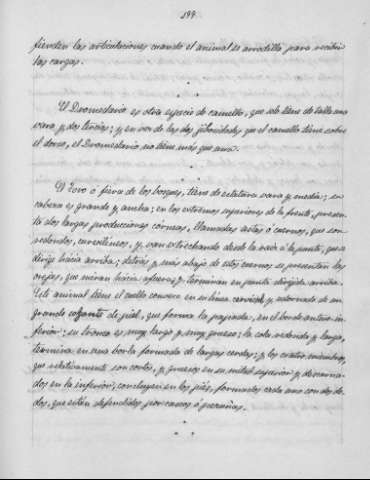 199.
fienden las articulaciones cuando el animal se arrodilla para recibir
las cargas.
El Dromedario es otra especie de camello, que solo tiene de talla una
vara y dos tercias; y en vez de las dos jibosidades que el camello tiene sobre
el dorso, el Dromedario no tiene más que una.
El Toro ó fiera de los bosques, tiene de estatura vara y media; su
cabeza es grande y ancha; en los estremos superiores de la frente, presen-
ta dos largas producciones córneas, llamadas astas ó cuernos, que son
redondos, curvilíneos, y van estrechando desde la raíz á la punta, que se
dirige hácia arriba; detrás y más abajo de estos cuernos se presentan las
orejas, que miran hácia afuera y terminan en punta dirigida arriba.
Este animal tiene el cuello convexo en su línea cervical, y adornado de un
grande colgante de piel, que forma la papada, en el borde anterio-
inferior; su tronco es muy largo y muy grueso; la cola redonda y larga,
termina en una borla formada de largas cerdas; y los cuatro miembros,
que relativamente son cortos, y gruesos en su mitad superior y descarna-
dos en la inferior, concluyen en los piés, formados cada uno con dos de-
dos, que están defendidos por cascos ó pezuñas.